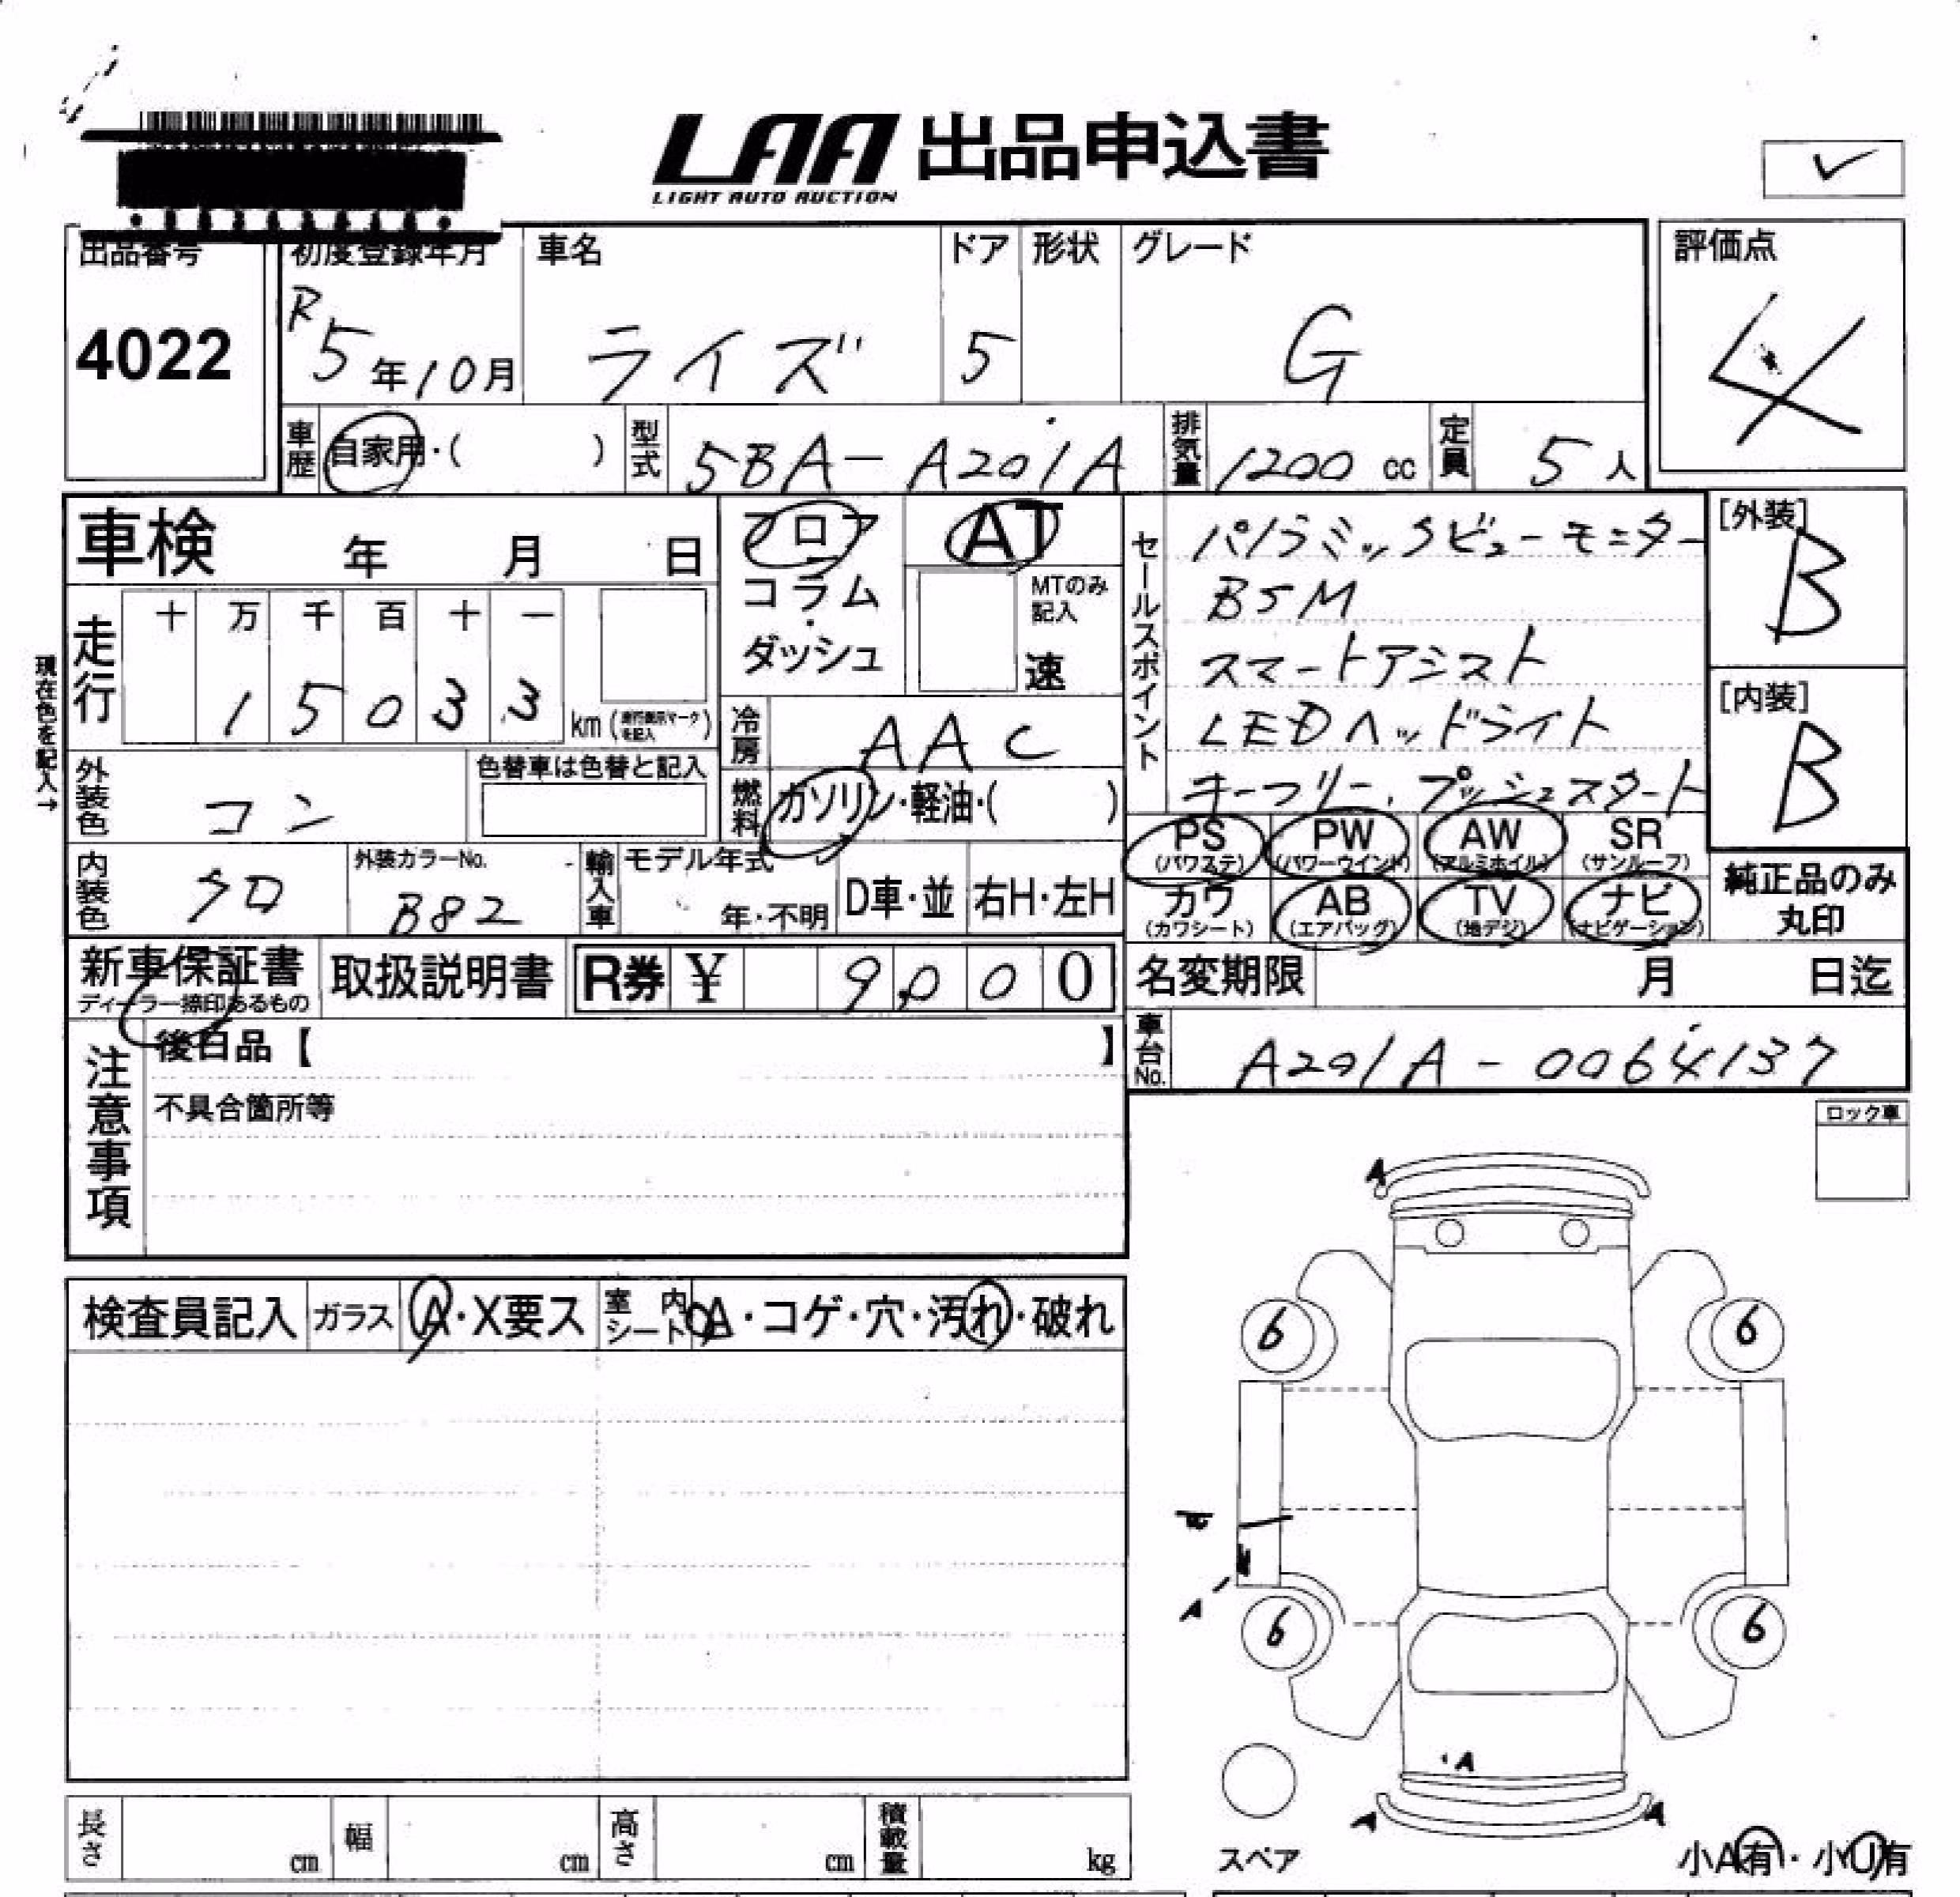 LAA 出品申込書
LIGHT AUTO AUCTION
出品番号 4022
初度登録年月 R5年10月
車名 ライズ
ドア 5
形状
グレード G
評価点 4
車歴 自家用・( )
型式 5BA-A201A
排気量 1200 cc
定員 5人
車検 年 月 日
フロア
コラム・ダッシュ
AT
MTのみ記入
速
セールスポイント
パノラミックビューモニター
BSM
スマートアシスト
LEDヘッドライト
キーフリー、プッシュスタート
[外装] B
[内装] B
現在色を記入→
走行 十 万 千 百 十 一
1 5 0 3 3 km (走行表示マークを記入)
冷房 AAC
燃料 ガソリン・軽油・( )
外装色 コン
色替車は色替と記入
内装色 クロ
外装カラーNo. B82
輸入車 モデル年式 年・不明
D車・並
右H・左H
PS (パワステ) PW (パワーウインド) AW (アルミホイル) SR (サンルーフ)
カワ (カワシート) AB (エアバッグ) TV (地デジ) ナビ (ナビゲーション)
純正品のみ丸印
新車保証書
ディーラー捺印あるもの
取扱説明書
R券 ¥ 9,000
名変期限 月 日迄
車台No. A201A-0064137
注意事項
後日品【 】
不具合箇所等
ロック車
検査員記入 ガラス A・X要ス 室内シート A・コゲ・穴・汚れ・破れ
A
6 6
A
6 6
A
A A
スペア
小A有・小U有
長さ cm 幅 cm 高さ cm 積載量 kg